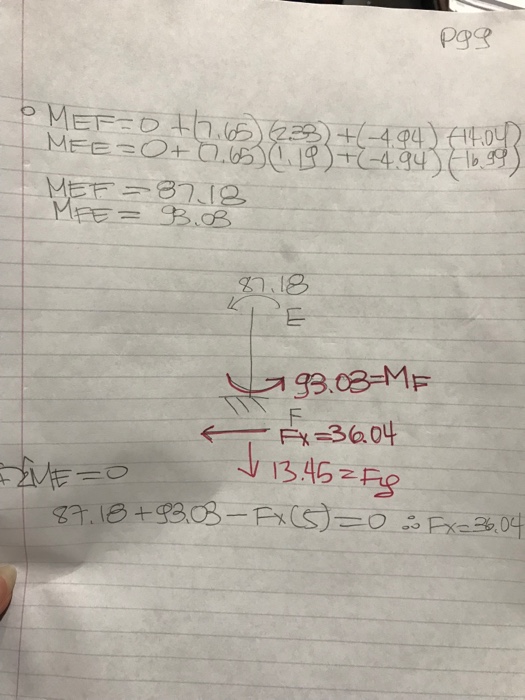 pg9
MEF=0+(7.65)(2.33)+(-4.94)(-14.04)
MFE=0+(7.65)(1.19)+(-4.94)(-16.99)
MEF=87.18
MFE=93.03
87.18
E
93.03=MF
F
Fx=36.04
13.45=Fy
ΣME=0
87.18+93.03-Fx(5)=0 ∴ Fx=36.04